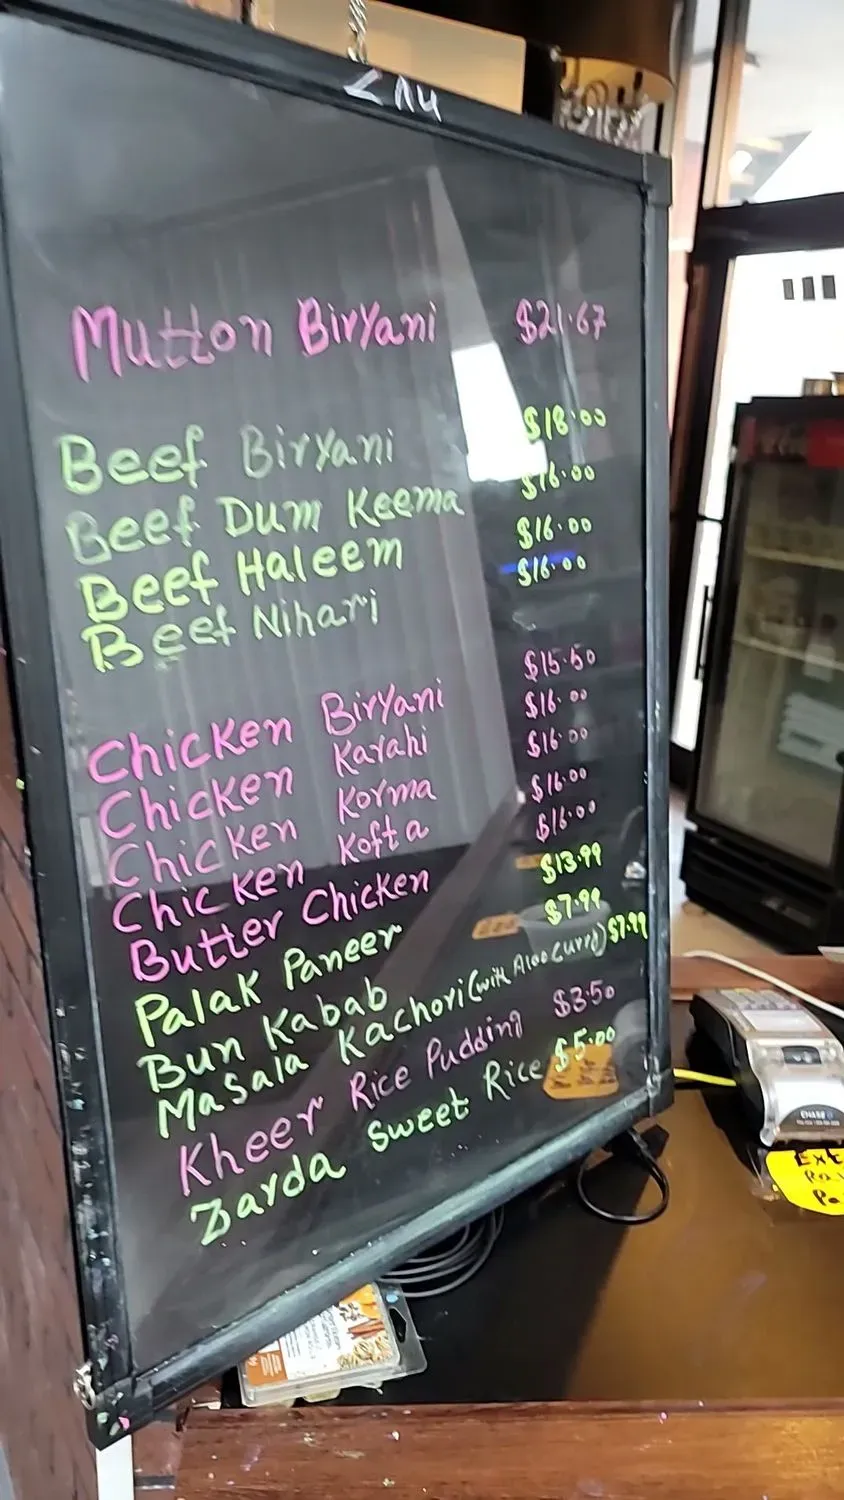 Mutton Biryani $21.67
Beef Biryani $18.00
Beef Dum Keema $16.00
Beef Haleem $16.00
Beef Nihari $16.00
Chicken Biryani $15.50
Chicken Karahi $16.00
Chicken Korma $16.00
Chicken Kofta $16.00
Butter Chicken $16.00
Palak Paneer $13.99
Bun Kabab $7.99
Masala Kachori (with Aloo Curry) $7.99
Kheer Rice Pudding $3.50
Zarda Sweet Rice $5.00
CHASE